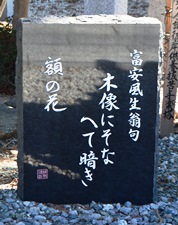 富安風生翁句
木像にそな
へて暗き
額の花